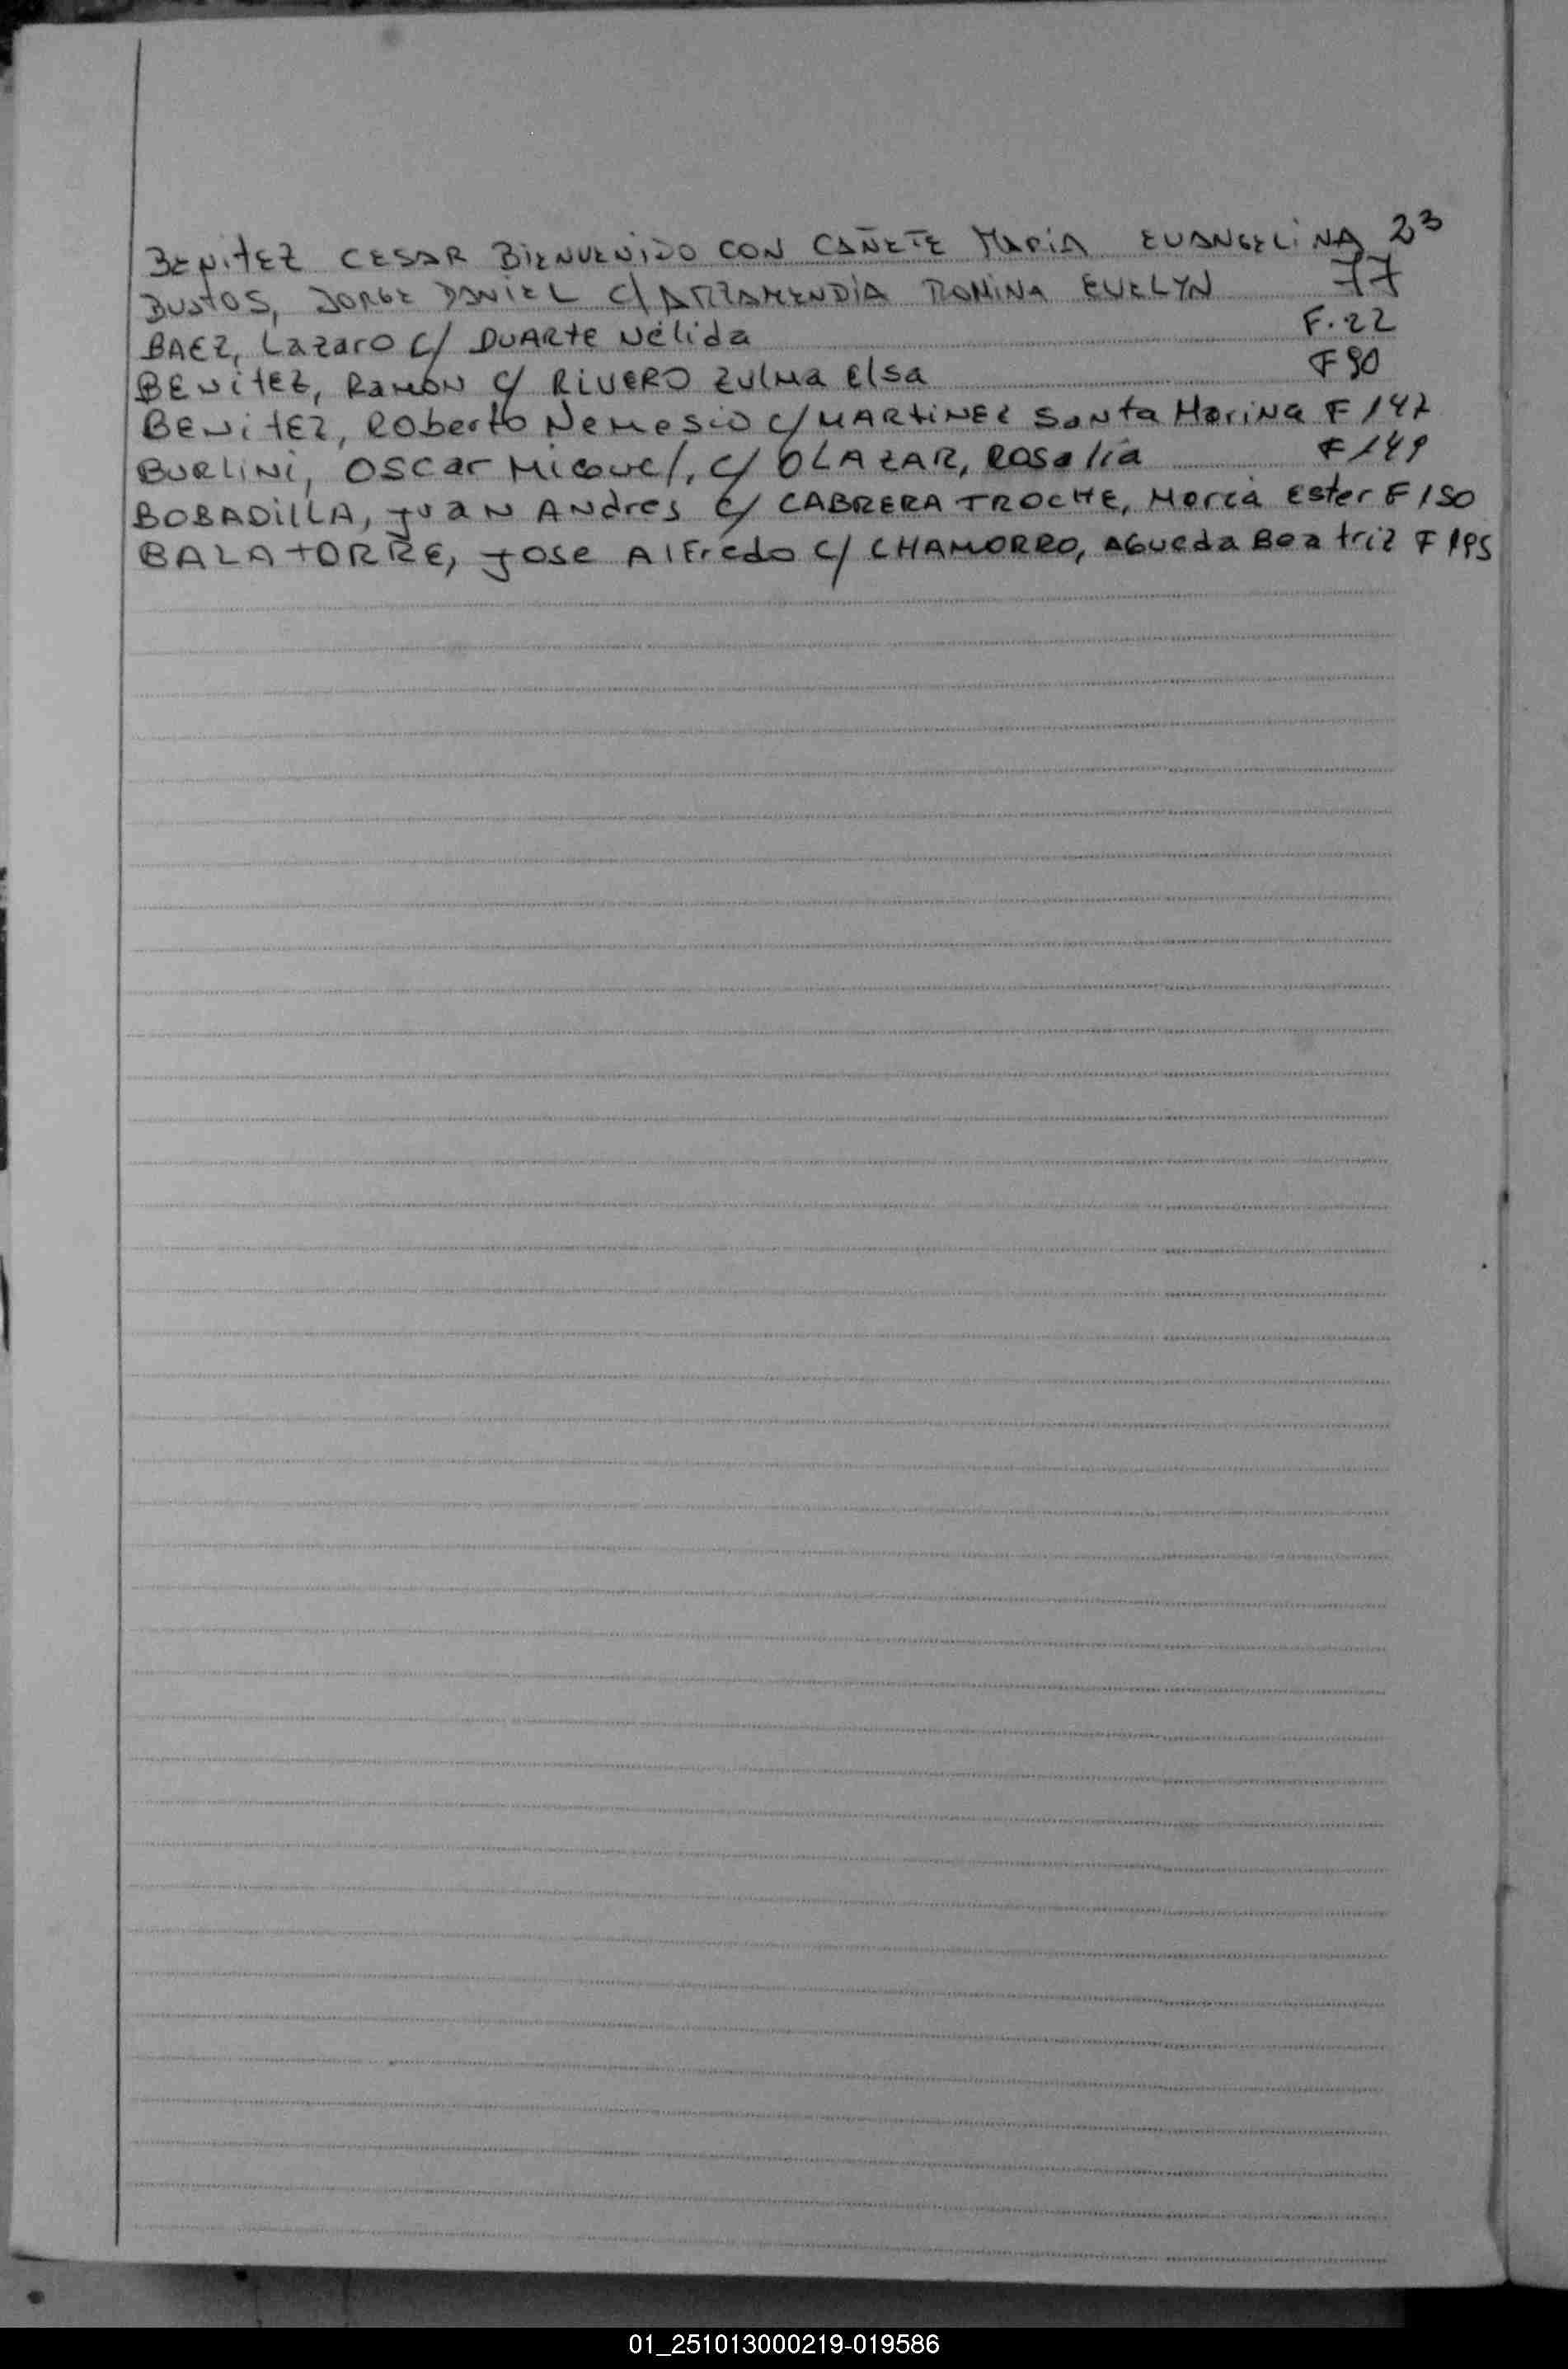 BENITEZ CESAR BIENVENIDO CON CAÑETE MARIA EVANGELINA 23
BUSTOS, JORGE DANIEL C/ ARZAMENDIA ROMINA EVELYN 77
BAEZ, Lazaro C/ DUARTE Nélida F.22
BENITEZ, RAMÓN C/ RIVERO ZULMA Elsa F 90
BENITEZ, Roberto Nemesio C/ MARTINEZ Santa Marina F 147
BURLINI, OSCAR MIGUEL, C/ OLAZAR, ROSALÍA F 149
BOBADILLA, JUAN ANDRES C/ CABRERA TROCHE, Ester F 150
BALATORRE, JOSE Alfredo C/ CHAMORRO, AGUEDA Beatriz F 195
01_251013000219-019586